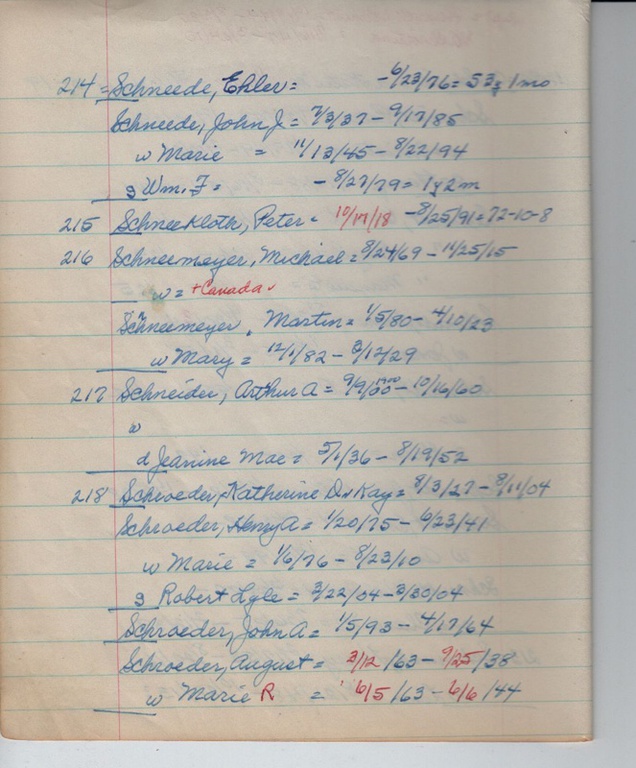 214 = Schneede, Ehler = - 6/23/76 = 53y 1mo
Schneede, John J. = 7/3/37 - 9/17/85
w Marie = 11/13/45 - 8/22/94
s Wm. F = - 8/27/79 = 1y2m
215 Schneekloth, Peter = 10/17/18 - 8/25/91 = 72-10-8
216 Schneemeyer, Michael = 8/24/69 - 11/25/15
w = + Canada
Schneemeyer, Martin = 1/5/80 - 4/10/23
w Mary = 12/1/82 - 3/12/29
217 Schneider, Arthur A = 9/9/00 1900 - 10/16/60
w
d Jeanine Mae = 5/1/36 - 8/19/52
218 Schroeder, Katherine D. "Kay" = 8/3/27 - 8/11/04
Schroeder, Henry A = 1/20/75 - 6/23/41
w Marie = 1/6/76 - 8/23/10
s Robert Lyle = 3/22/04 - 3/30/04
Schroeder, John A = 1/5/93 - 4/17/64
Schroeder, August = 3/12/63 - 9/25/38
w Marie R = 6/5/63 - 6/6/44